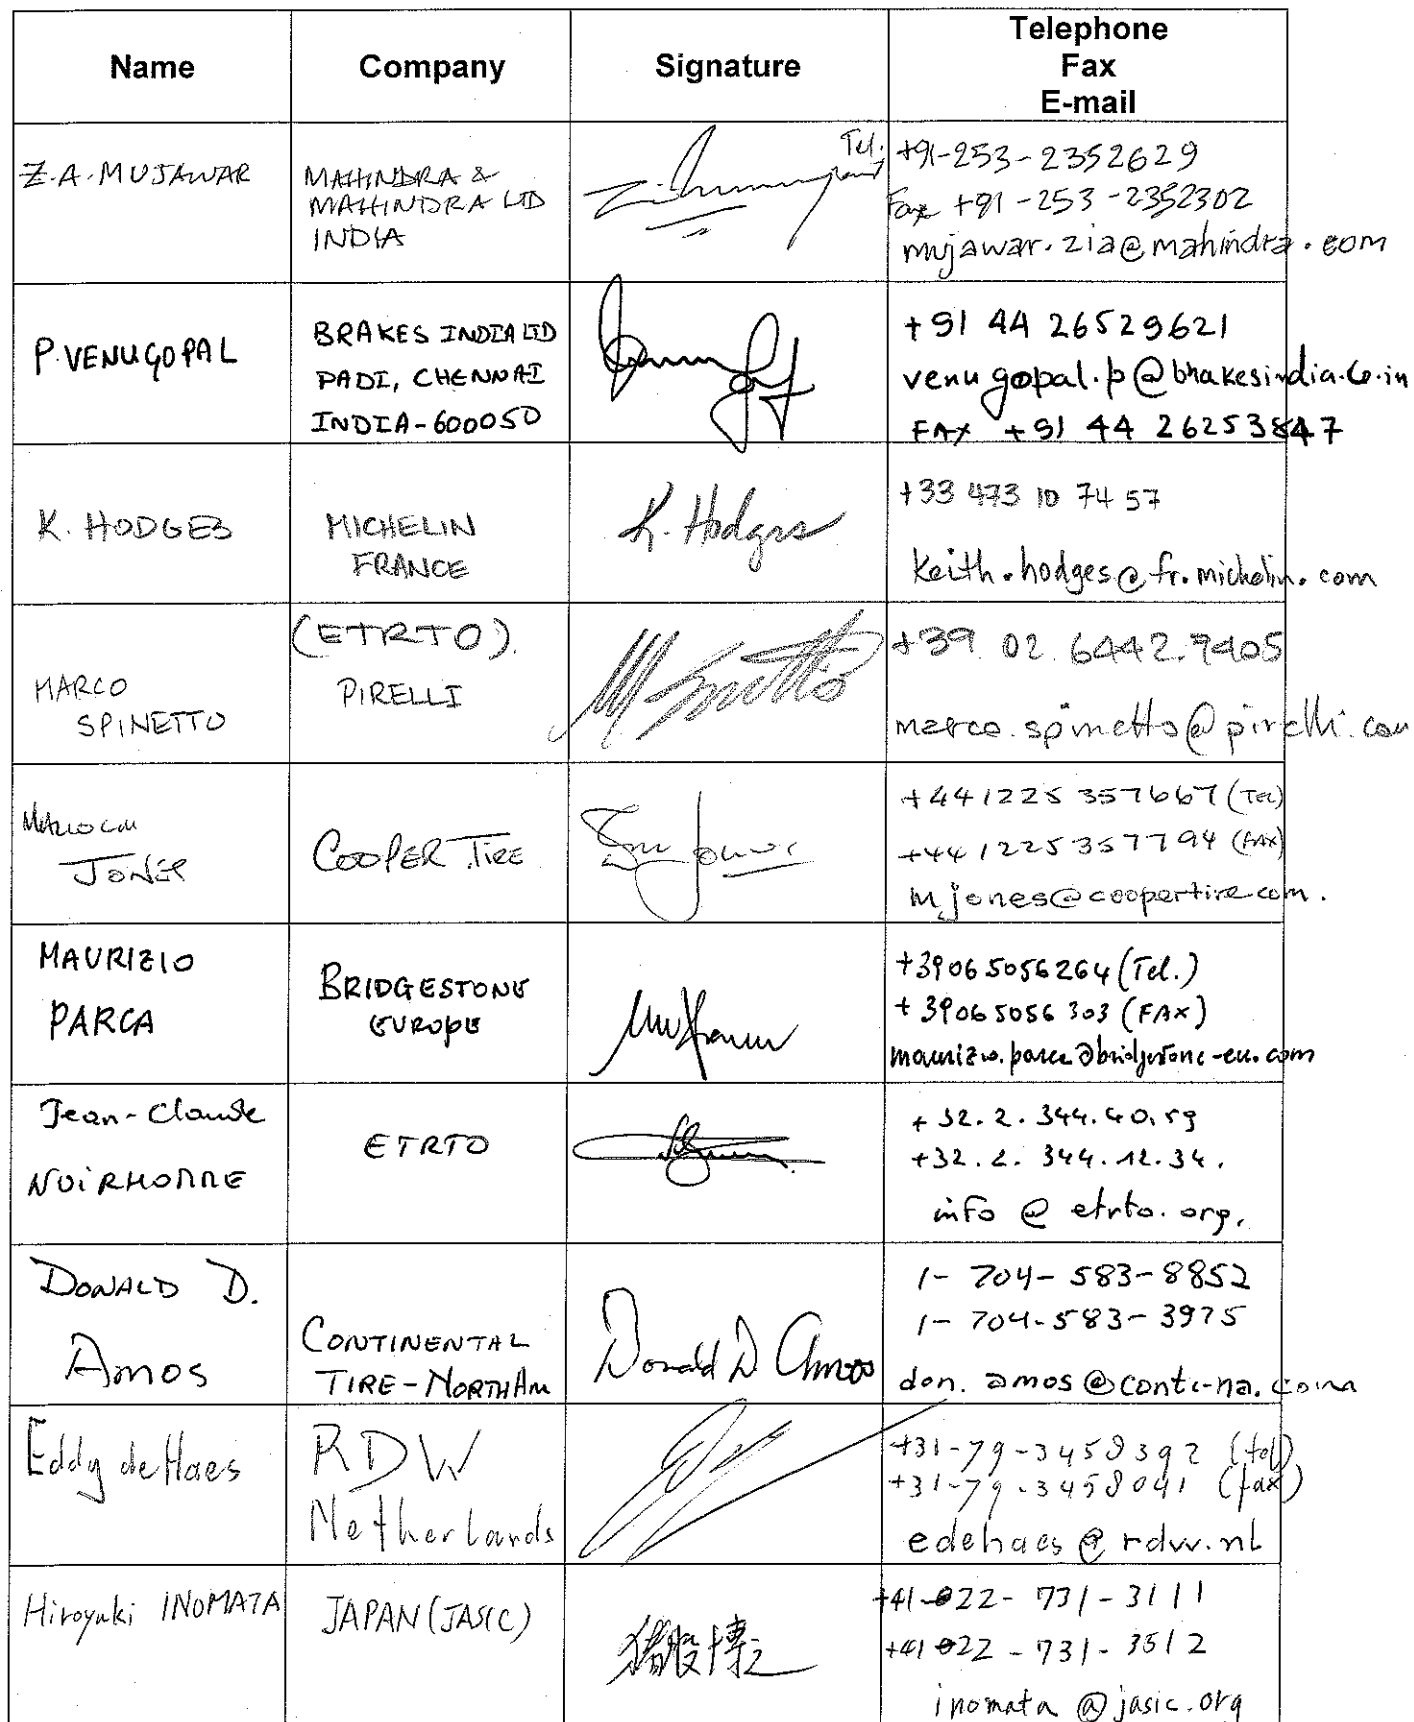 Name
Company
Signature
Telephone
Fax
E-mail
Z.A. MUJAWAR
MAHINDRA &
MAHINDRA LTD
INDIA
Tel. +91-253-2352629
Fax +91-253-2352302
mujawar.zia@mahindra.com
P. VENUGOPAL
BRAKES INDIA LTD
PADI, CHENNAI
INDIA-600050
+91 44 26529621
venugopal.p@brakesindia.co.in
FAX +91 44 26253847
K. HODGES
MICHELIN
FRANCE
K. Hodges
+33 473 10 74 57
keith.hodges@fr.michelin.com
MARCO
SPINETTO
(ETRTO).
PIRELLI
M Spinetto
+39 02 6442.7405
marco.spinetto@pirelli.com
JONES
COOPER TIRE
+44 1225 357667 (TEL)
+44 1225 357794 (FAX)
m.jones@coopertire.com.
MAURIZIO
PARCA
BRIDGESTONE
EUROPE
+39065056264 (Tel.)
+39065056303 (FAX)
maurizio.parca@bridgestone-eu.com
Jean-Claude
NOIRHOMME
ETRTO
+32.2.344.40.59
+32.2.344.12.34.
info@etrto.org.
DONALD D.
Amos
CONTINENTAL
TIRE-NORTH AM
Donald D Amos
1-704-583-8852
1-704-583-3975
don.amos@conti-na.com
Eddy de Haes
RDW
Netherlands
+31-79-3458392 (tel)
+31-79-3458041 (fax)
edehaes@rdw.nl
Hiroyuki INOMATA
JAPAN (JASIC)
猪股博之
+41-022-731-3111
+41 022-731-3512
inomata@jasic.org